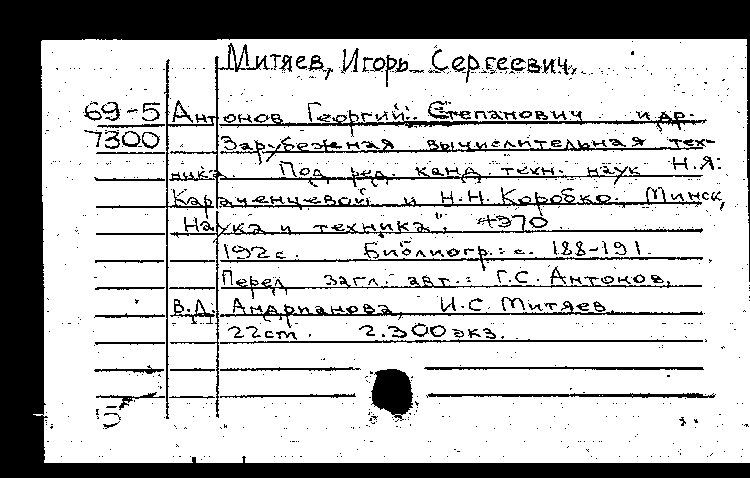 Митяев, Игорь Сергеевич.
69-5 Антонов Георгий Степанович и др.
7300 Зарубежная вычислительная тех-
ника. Под ред. канд. техн. наук Н.Я.
Караченцевой и Н.Н. Коробко. Минск,
"Наука и техника", 1970.
192 с. Библиогр.: с. 188-191.
Перед загл. авт.: Г.С. Антонов,
В.Д. Андрианова, И.С. Митяев.
22 cm. 2.300 экз.
15